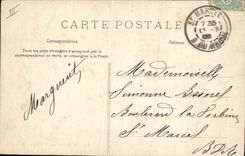 CARTE POSTALE
ST MARCEL
7 35
B. DU RHONE
Correspondance
Adresse
Tous les pays étrangers n'acceptent pas la
correspondance au recto, se renseigner à la Poste
Marguerite
Mademoiselle
Simonne
Boulevard la
St Marcel
B d R